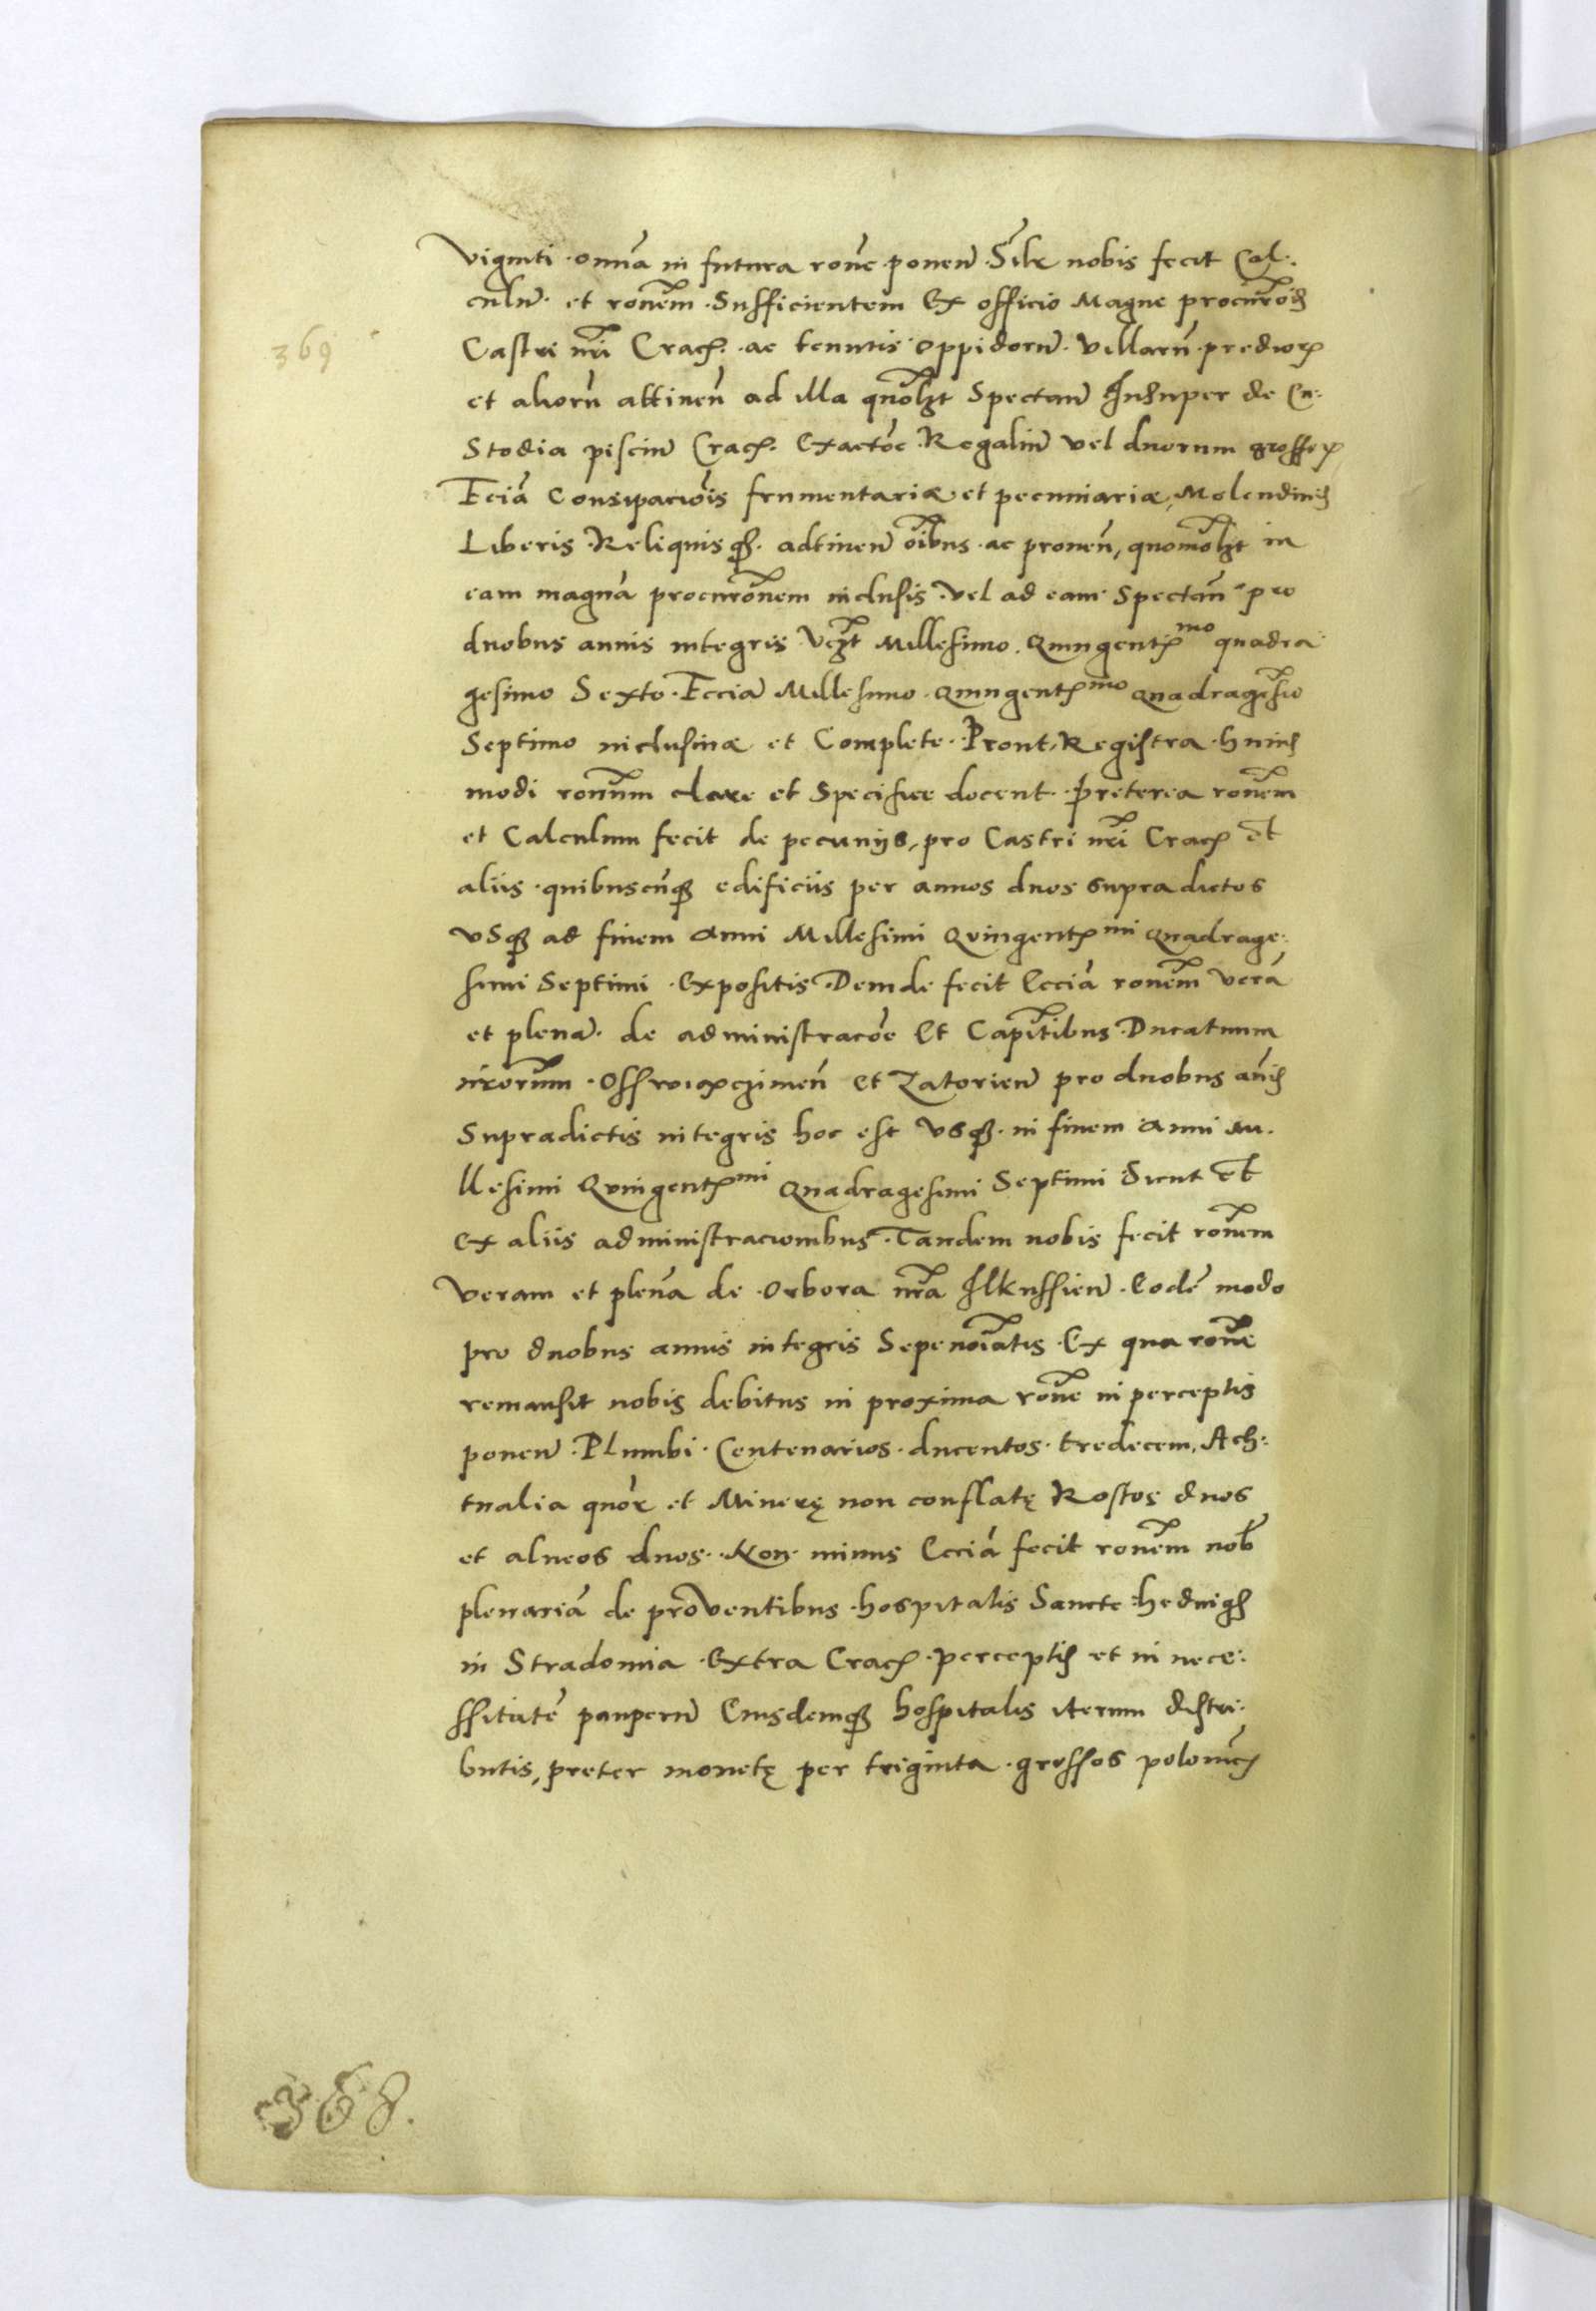 viginti · omnia in futura rone ponen̄ · Silr nobis fecit Cal·
culū · et ronem · Sufficientem Ex officio Magne procurōis
369
Castri nr̄i Crac̄ · ac tenutis oppidorū · villarū · predioꝝ
et aliorū attinen̄ ad illa quolꝫt Spectan̄ Insuper de Cu:
Stodia piscin̄ Crac̄ · Exactōe Regaliū vel duorum grossoꝝ
Eciā Consipaciōis frumentariæ et pecuniariæ, Molendinis
Liberis · Reliquisqꝫ · adtinen̄ oībus · ac proven̄, quomolꝫt in
eam magnā procurōnem inclusis · vel ad eam Spectan̄ pro
duobus annis integris vcꝫt Millesimo · Quingentꝫmo quadra:
gesimo Sexto · Ecciā Millesimo · quingentꝫmo Quadragesīo
Septimo inclusiuæ et Complete · Prout, Registra · huius
modi ronum clare et Specifice docent · preterea ronem
et Calculum fecit de pecunijs, pro Castri nr̄i Crac̄ et
aliis · quibuscūqꝫ edificiis per annos duos supradictos
vsqꝫ ad finem anni Millesimi Quingentꝫmi Quadrage:
simi Septimi · Expositis · Deinde fecit Ecciā ronem verā
et plenā · de administracōe Et Capitībus · Ducatuum
nr̄orum · Osswiaczimen̄ et Zatorien̄ pro duobus an̄is
Supradictis integris hoc est vsqꝫ · in finem anni Mi·
llesimi Quingentꝫmi Quadragesimi Septimi Sicut et
Ex aliis administracionibus · Tandem nobis fecit ronem
veram et plenā de · Orbora nr̄a Ilkussien̄ · Eodē modo
pro duobus annis integris Sepenoīatis · Ex qua rone
remansit nobis debitus in proxima rone in perceptis
ponen̄ · Plumbi · Centenarios · ducentos · tredecem, Ach:
tualia quor et Minerę non conflatę Rostos duos
et alueos duos · Non minus Ecciā fecit ronem nob̄
plenariā de proventibus · hospitalis Sancte Heduigis
in Stradomia · Extra Crac̄ · perceptis et in nece:
ssitatē pauperū Eiusdemqꝫ hospitalis iterum distri:
butis, preter monetę per triginta · grossos polonic̄
368.